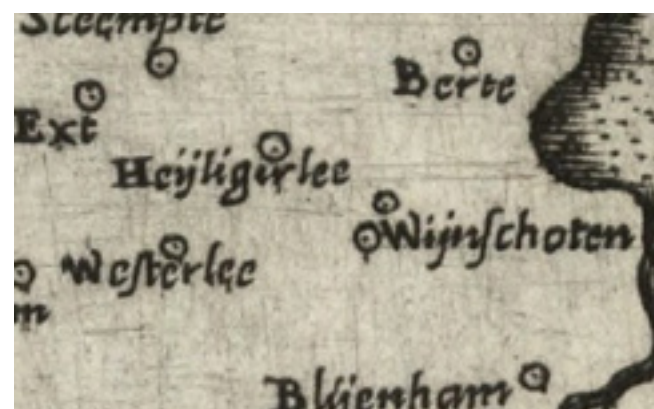 Steempte
Berte
Ext
Heijligerlee
Wijnſchoten
Weſterlee
Blijenham